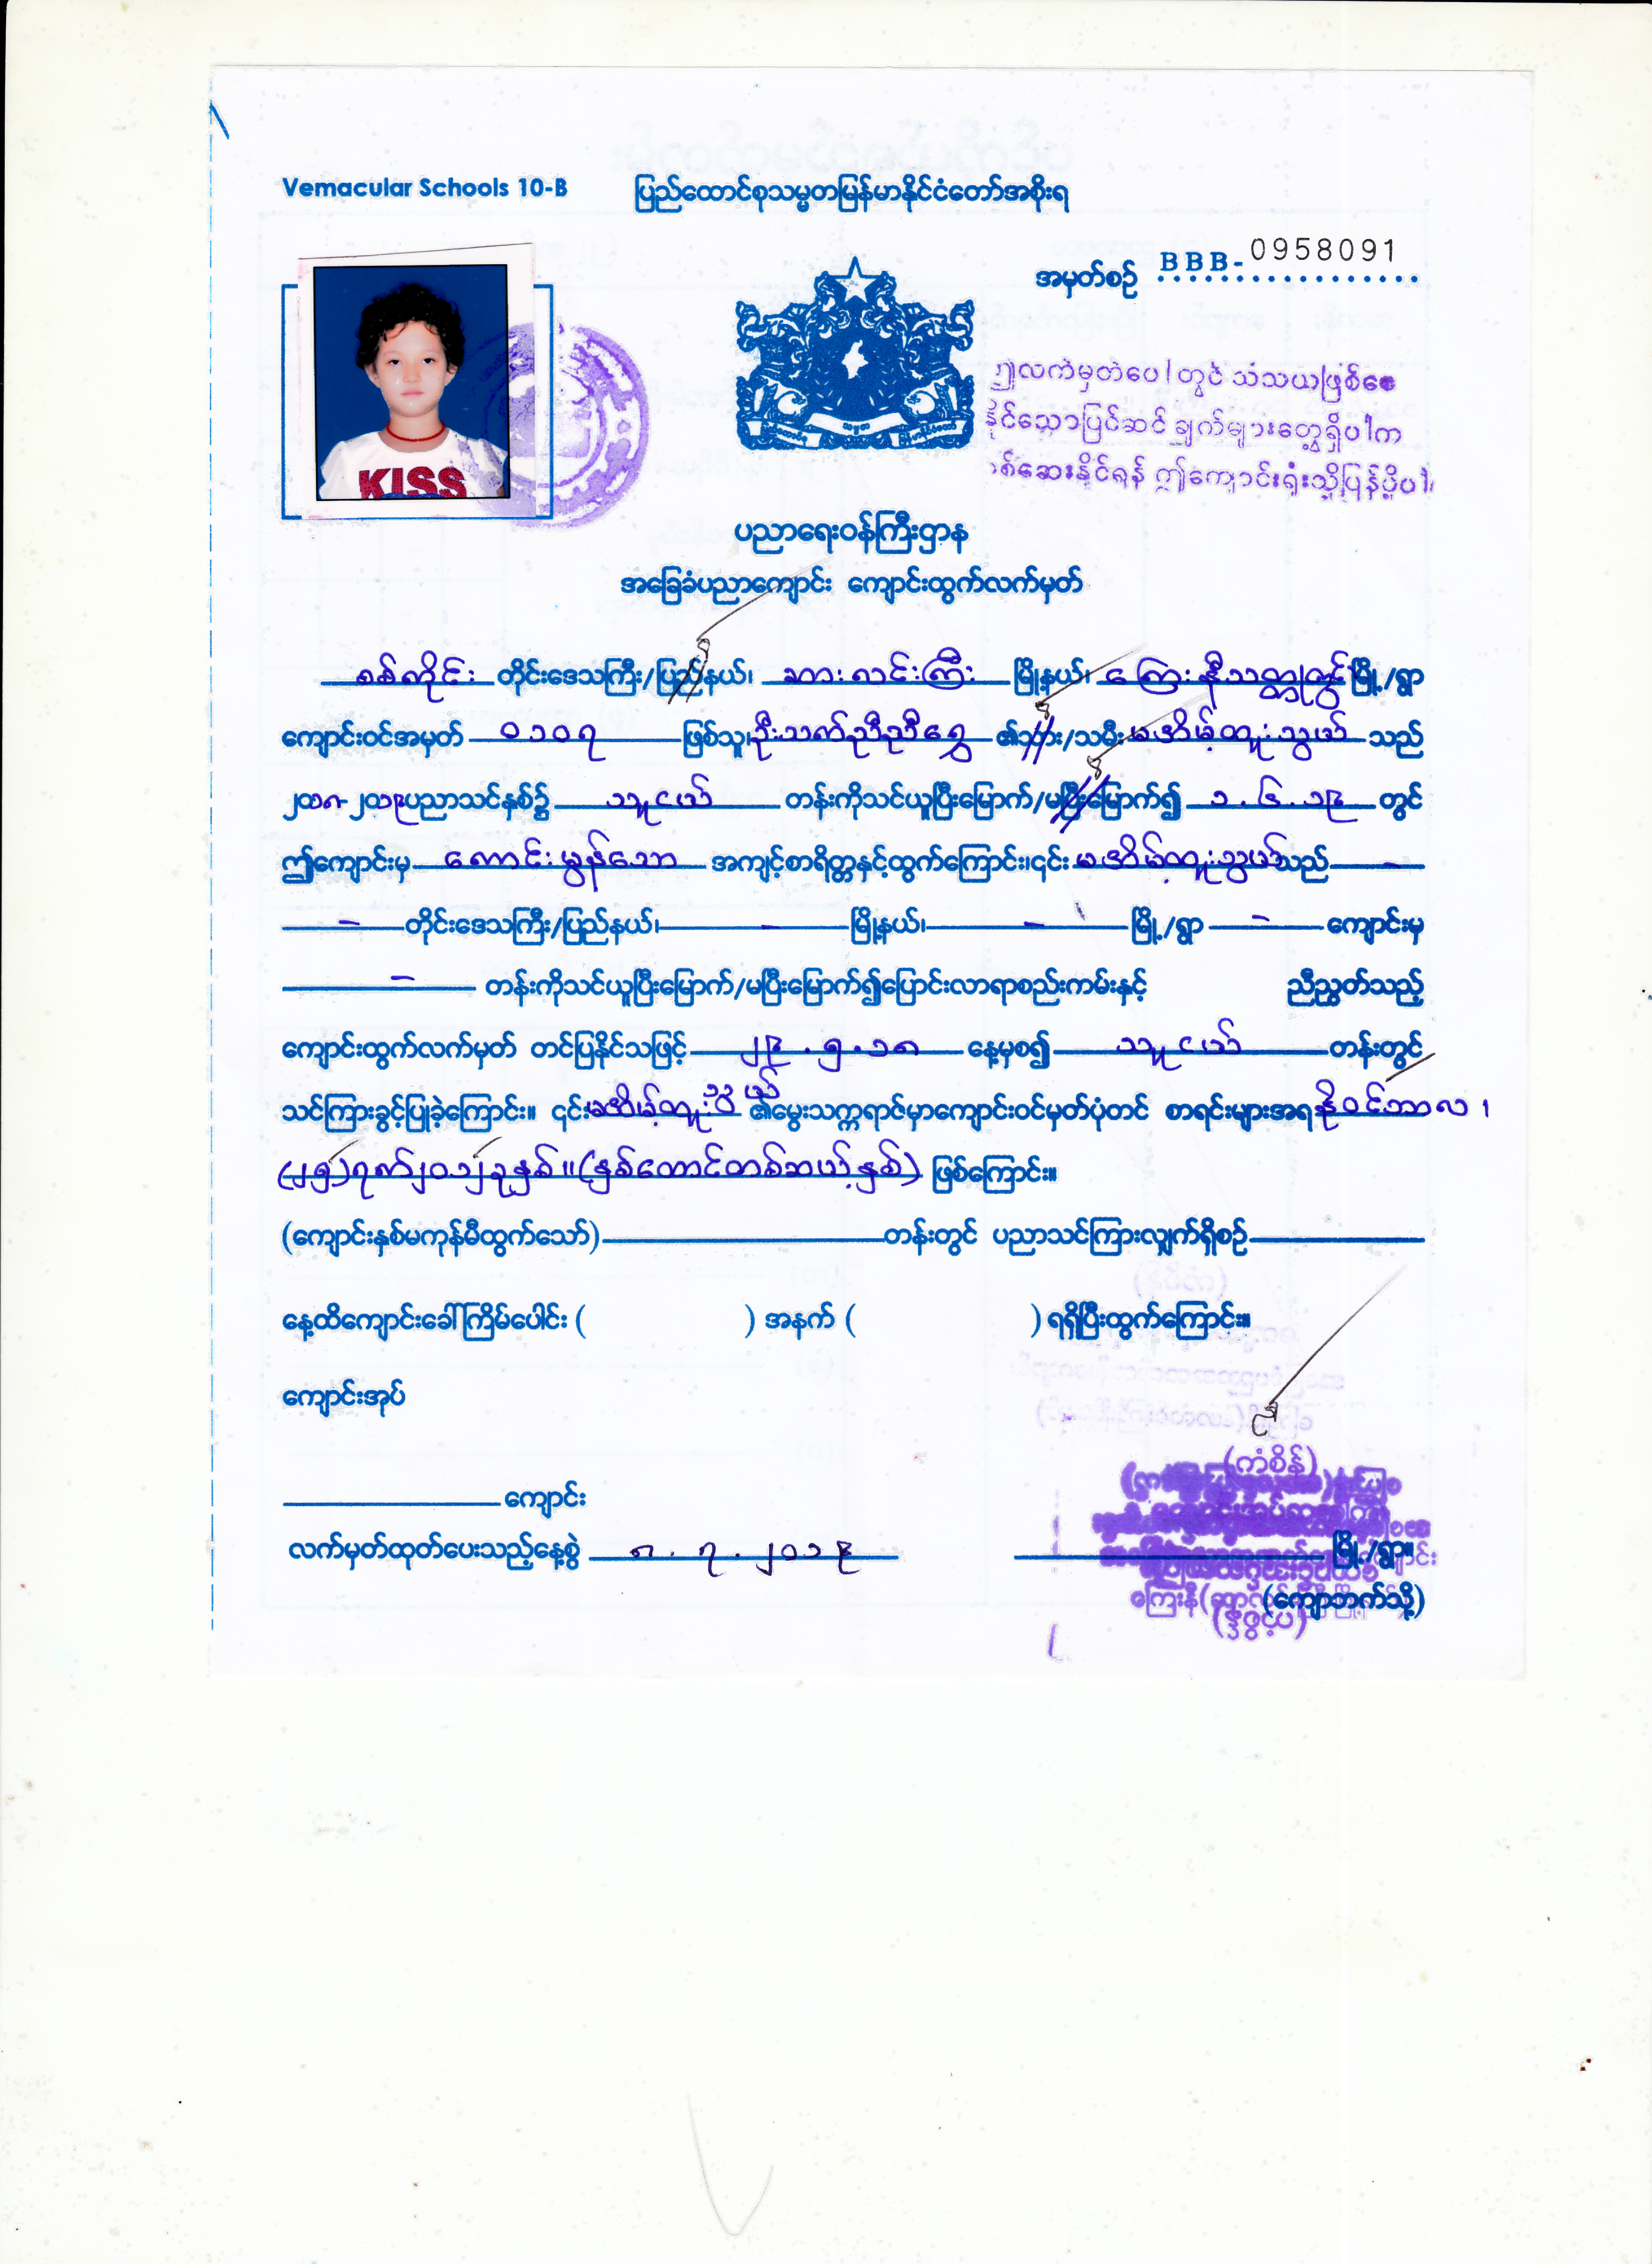 Vemacular Schools 10-B
ပြည်ထောင်စုသမ္မတမြန်မာနိုင်ငံတော်အစိုးရ
အမှတ်စဉ် BBB-0958091
KISS
ဤလက်မှတ်ပေါ်တွင် သံသယဖြစ်စေ
နိုင်သောပြင်ဆင်ချက်များတွေ့ရှိပါက
စစ်ဆေးနိုင်ရန် ဤကျောင်းရုံးသို့ပြန်ပို့ပါ
ပညာရေးဝန်ကြီးဌာန
အခြေခံပညာကျောင်း ကျောင်းထွက်လက်မှတ်
စစ်ကိုင်း တိုင်းဒေသကြီး/ပြည်နယ်၊ ဆားလင်းကြီး မြို့နယ်၊ ကြေးနီသတ္တုတွင် မြို့/ရွာ
ကျောင်းဝင်အမှတ် ၀၁၀၇ ဖြစ်သူ၊ ဦးသက်ညီညီရွှေ ၏သား/သမီး မအိမ့်ထူးသွယ် သည်
၂၀၁၈-၂၀၁၉ ပညာသင်နှစ်၌ သူငယ် တန်းကိုသင်ယူပြီးမြောက်/မပြီးမြောက်၍ ၁.၆.၁၉ တွင်
ဤကျောင်းမှ ကောင်းမွန်သော အကျင့်စာရိတ္တနှင့်ထွက်ကြောင်း၊၎င်း မအိမ့်ထူးသွယ် သည် –
– တိုင်းဒေသကြီး/ပြည်နယ်၊ – မြို့နယ်၊ – မြို့/ရွာ – ကျောင်းမှ
– တန်းကိုသင်ယူပြီးမြောက်/မပြီးမြောက်၍ပြောင်းလာရာစည်းကမ်းနှင့် ညီညွတ်သည့်
ကျောင်းထွက်လက်မှတ် တင်ပြနိုင်သဖြင့် ၂၉.၅.၁၈ နေ့မှစ၍ သူငယ် တန်းတွင်
သင်ကြားခွင့်ပြုခဲ့ကြောင်း။ ၎င်း မအိမ့်ထူးသွယ် ၏မွေးသက္ကရာဇ်မှာကျောင်းဝင်မှတ်ပုံတင် စာရင်းများအရ နိုဝင်ဘာလ၊
(၂၅)ရက်၂၀၁၂ခုနှစ်။(နှစ်ထောင်တစ်ဆယ့်နှစ်) ဖြစ်ကြောင်း။
(ကျောင်းနှစ်မကုန်မီထွက်သော်) တန်းတွင် ပညာသင်ကြားလျှက်ရှိစဉ်
နေ့ထိကျောင်းခေါ်ကြိမ်ပေါင်း ( ) အနက် ( ) ရရှိပြီးထွက်ကြောင်း။
ကျောင်းအုပ်
(ကံစိန်)
ကျောင်း
လက်မှတ်ထုတ်ပေးသည့်နေ့စွဲ ၈.၇.၂၀၁၉ မြို့/ရွာ။
(ကျောဘက်သို့)